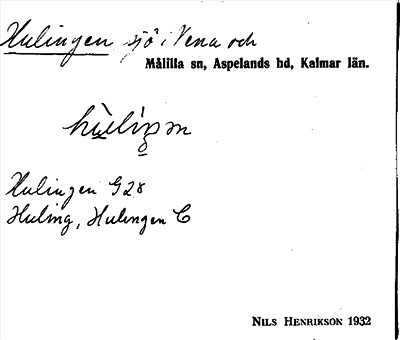 Hulingen sjö i Vena och
Målilla sn, Aspelands hd, Kalmar län.
Hulingen G28
Huling, Hulingen C
NILS HENRIKSON 1932